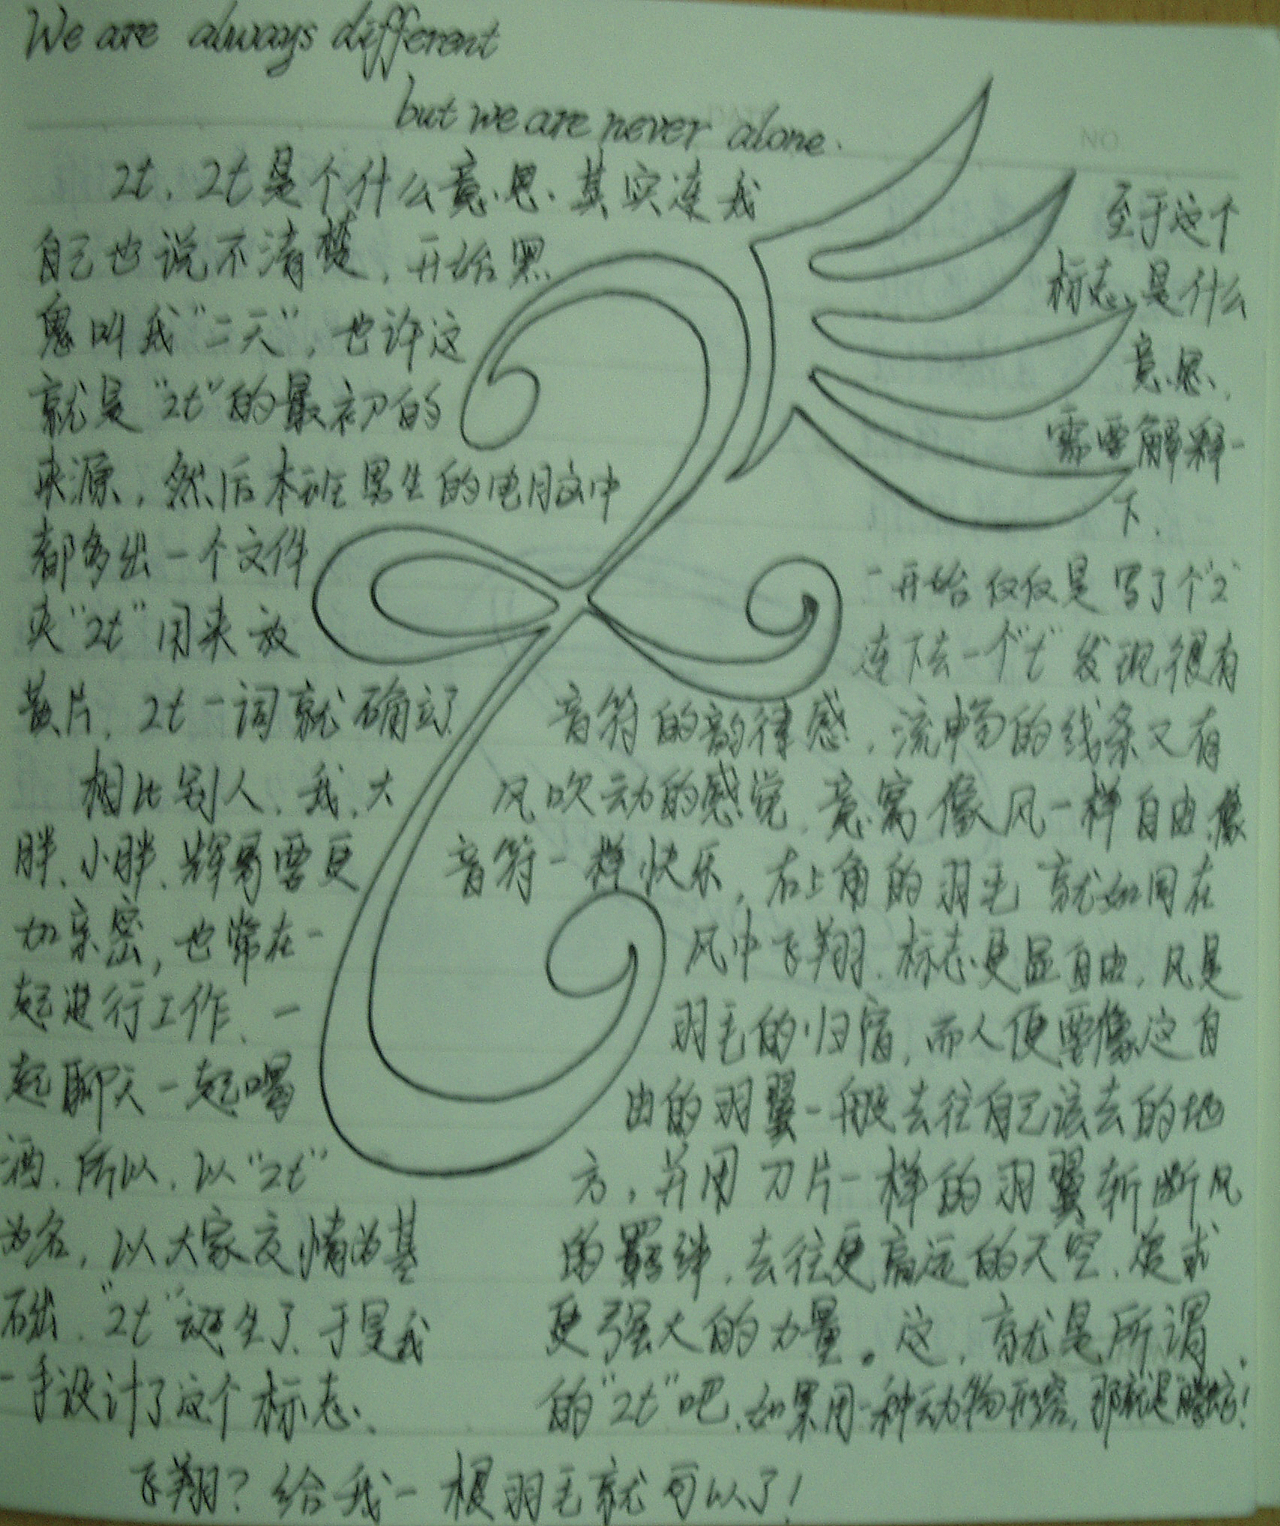 We are always different
but we are never alone.
2t,2t是个什么意思、其实连我
自己也说不清楚,开始黑
鬼叫我"二天",也许这
就是"2t"的最初的
来源,然后本班男生的电脑中
都多出一个文件
夹"2t"用来放
散片,2t一词就确立了
相比别人、我、大
胖、小胖、辉哥要更
加亲密,也常在一
起进行工作、一
起聊天一起喝
酒、所以、以"2t"
为名,以大家友情为基
础、"2t"诞生了、于是我
一手设计了这个标志、
至于这个
标志是什么
意思、
需要解释一
下、
一开始仅仅是写了个"2"
连下去一个"t"发现很有
音符的韵律感,流畅的线条又有
风吹动的感觉,意寓像风一样自由、像
音符一样快乐,右上角的羽毛就如同在
风中飞翔、标志更显自由,风是
羽毛的归宿,而人便要像这自
由的羽翼一般去往自己该去的地
方,并用刀片一样的羽翼斩断风
的羁绊,去往更高远的天空、追求
更强大的力量。这,就是所谓
的"2t"吧、如果用一种动物形容,那就是!
飞翔?给我一根羽毛就可以了!